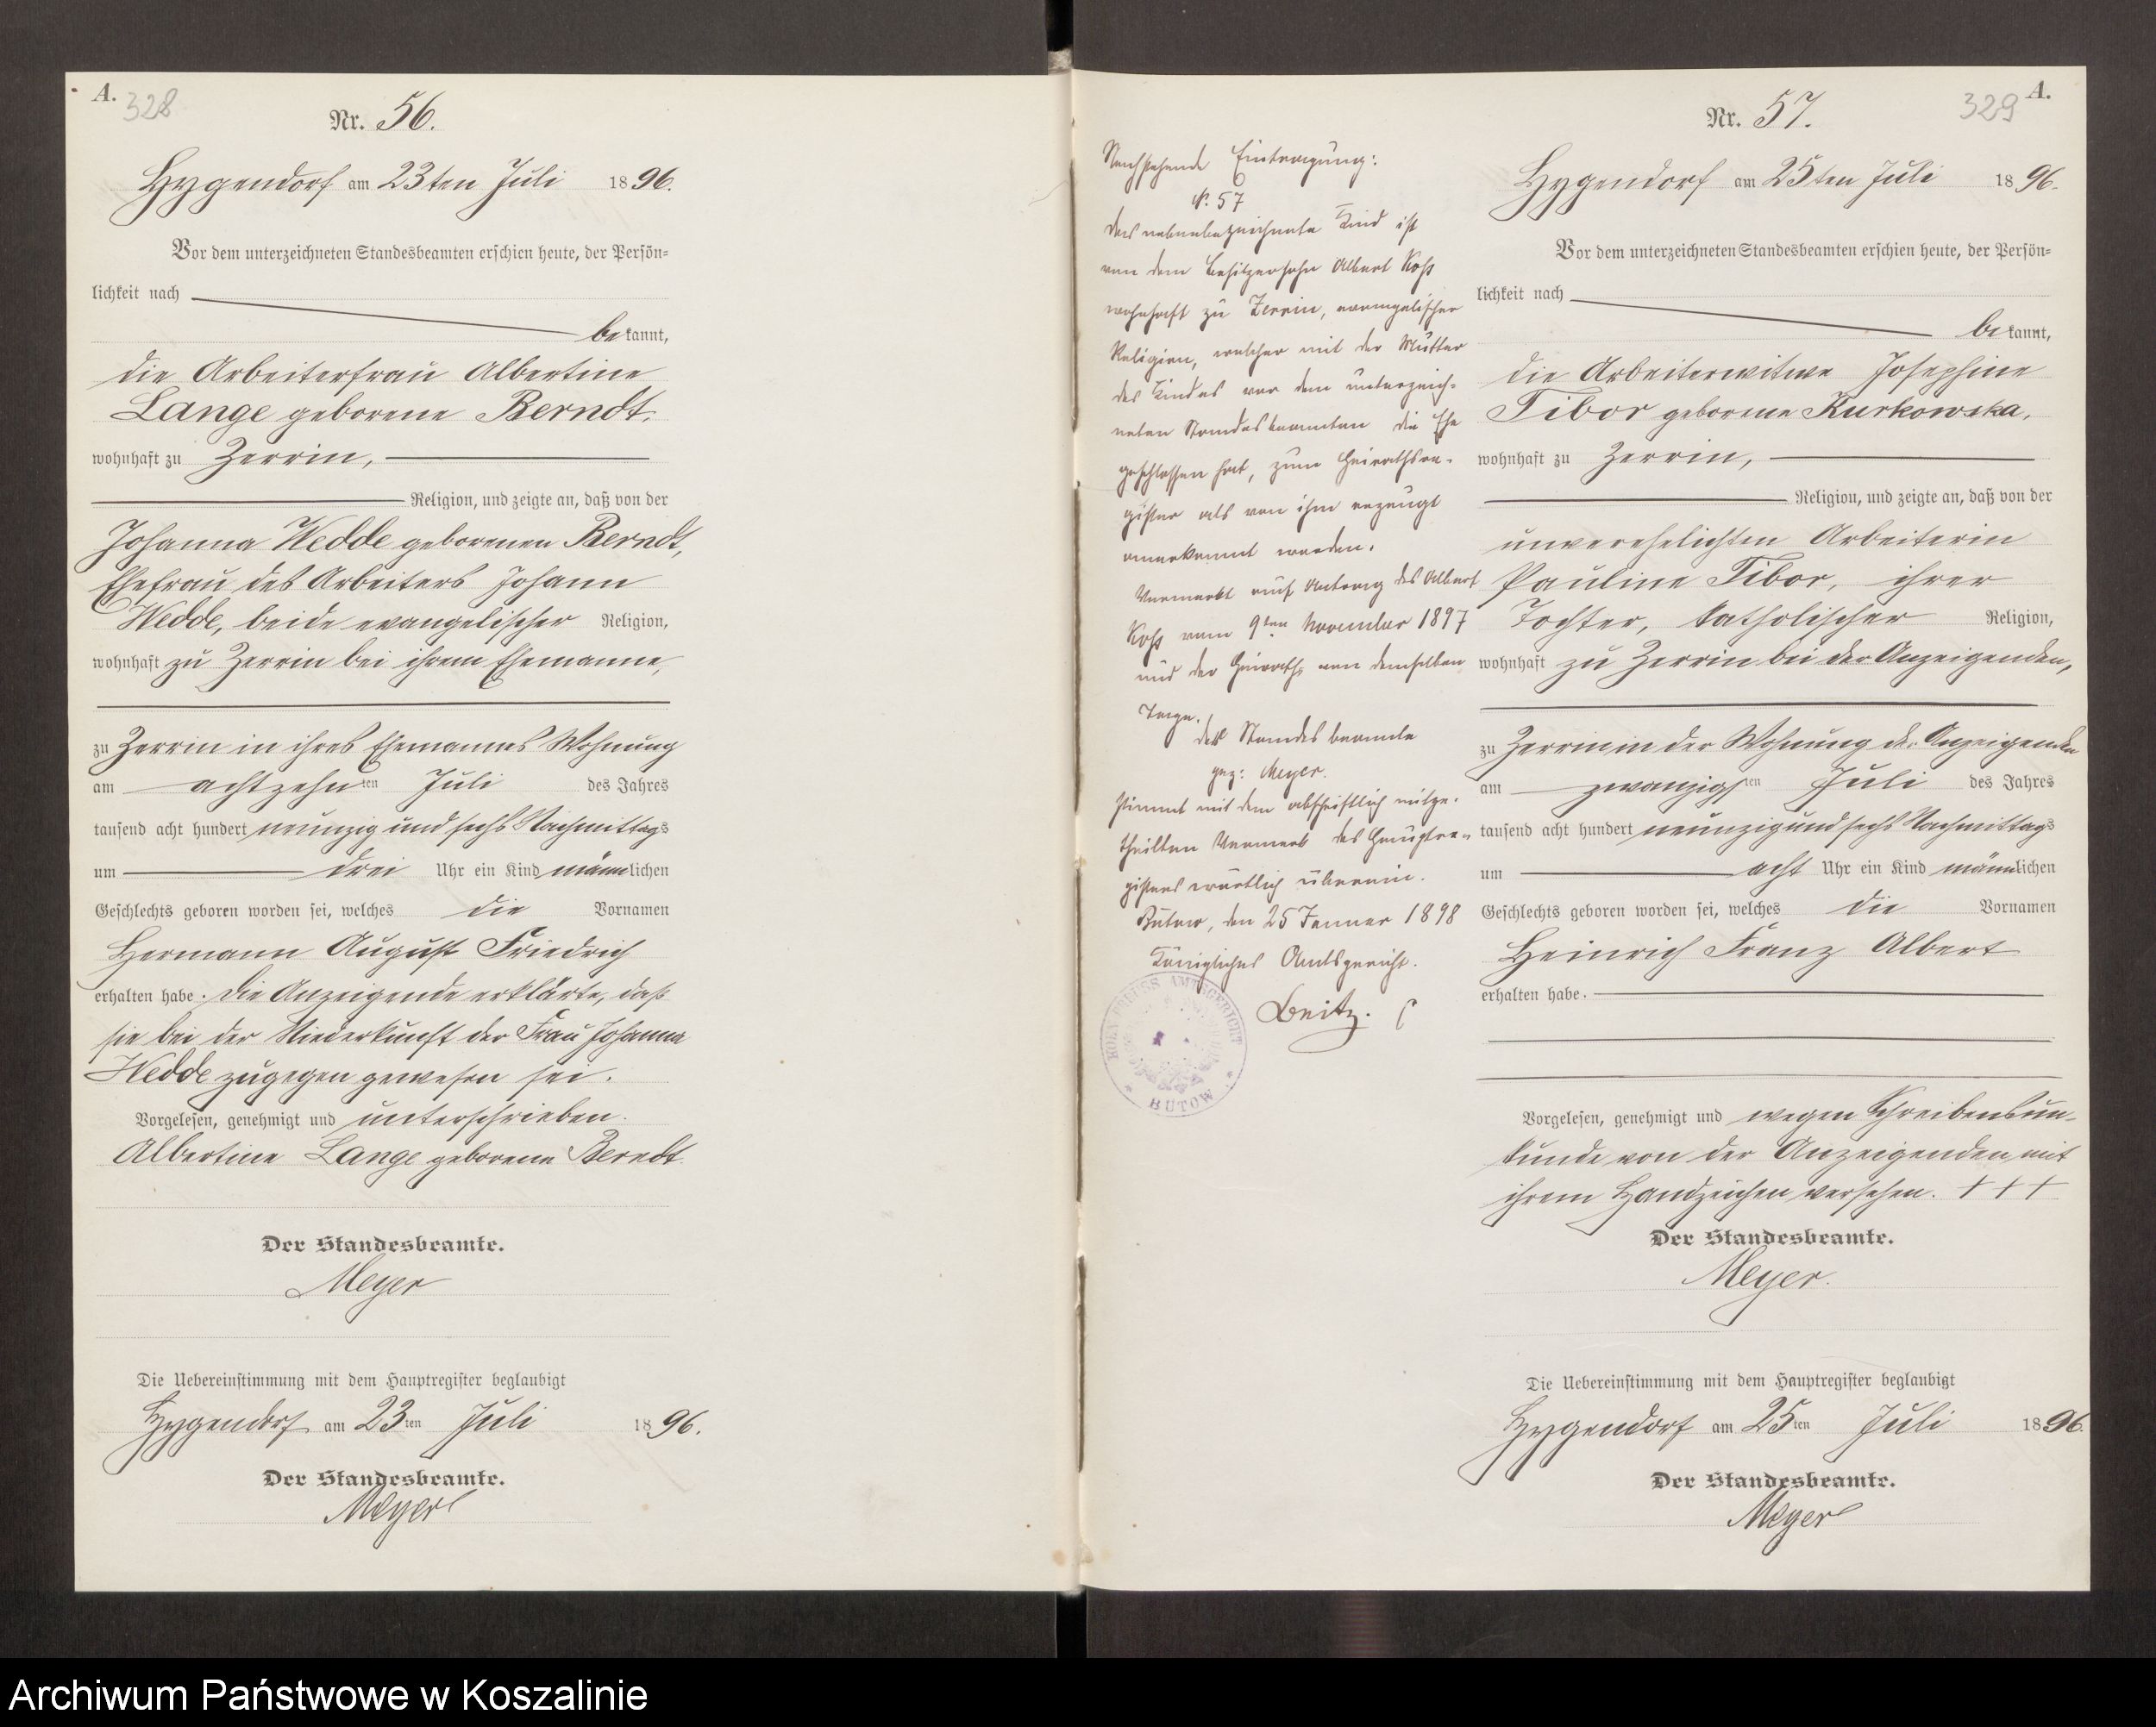 A.
328
Nr. 56.
Hygendorf am 23ten Juli 1896.
Vor dem unterzeichneten Standesbeamten erschien heute, der Persön=
lichkeit nach
be kannt,
die Arbeiterfrau Albertine
Lange geborene Berndt,
wohnhaft zu Zerrin,
Religion, und zeigte an, daß von der
Johanna Wedde geborenen Berndt,
Ehefrau des Arbeiters Johann
Wedde, beide evangelischer Religion,
wohnhaft zu Zerrin bei ihrem Ehemanne,
zu Zerrin in ihres Ehemannes Wohnung
am achtzehnten Juli des Jahres
tausend acht hundert neunzig und sechs Nachmittags
um drei Uhr ein Kind männlichen
Geschlechts geboren worden sei, welches die Vornamen
Hermann August Friedrich
erhalten habe. Die Anzeigende erklärte, daß
sie bei der Niederkunft der Frau Johanna
Wedde zugegen gewesen sei.
Vorgelesen, genehmigt und unterschrieben.
Albertine Lange geborene Berndt.
Der Standesbeamte.
Meyer
Die Uebereinstimmung mit dem Hauptregister beglaubigt
Hygendorf am 23ten Juli 1896.
Der Standesbeamte.
Meyer
Nachstehende Eintragung:
N. 57
Das nebenbezeichnete Kind ist
von dem Besitzersohn Albert Koß
wohnhaft zu Zerrin, evangelischer
Religion, welcher mit der Mutter
des Kindes vor dem unterzeich-
neten Standesbeamten die Ehe
geschlossen hat, zum Heirathsre-
gister als von ihm erzeugt
anerkannt worden.
Vermerkt auf Antrag des Albert
Koß vom 9ten November 1897
und der Heiraths von demselben
Tage.
der Standesbeamte
gez: Meyer.
stimmt mit dem abschriftlich mitge-
theilten Vermerk des Hauptre-
gisters wörtlich überein.
Bütow, den 25 Januar 1898
Königliches Amtsgericht.
KÖN. PREUSS. AMTSGERICHT
BÜTOW
A.
329
Nr. 57.
Hygendorf am 25ten Juli 1896.
Vor dem unterzeichneten Standesbeamten erschien heute, der Persön=
lichkeit nach
be kannt,
die Arbeiterwitwe Josephine
Tibor geborene Kurkowska,
wohnhaft zu Zerrin,
Religion, und zeigte an, daß von der
unverehelichten Arbeiterin
Pauline Tibor, ihrer
Tochter, katholischer Religion,
wohnhaft zu Zerrin bei der Anzeigenden,
zu Zerrin in der Wohnung der Anzeigenden
am zwanzigsten Juli des Jahres
tausend acht hundert neunzig und sechs Nachmittags
um acht Uhr ein Kind männlichen
Geschlechts geboren worden sei, welches die Vornamen
Heinrich Franz Albert
erhalten habe.
Vorgelesen, genehmigt und wegen Schreibensun-
kunde von der Anzeigenden mit
ihrem Handzeichen versehen. + + +
Der Standesbeamte.
Meyer.
Die Uebereinstimmung mit dem Hauptregister beglaubigt
Hygendorf am 25ten Juli 1896.
Der Standesbeamte.
Meyer
Archiwum Państwowe w Koszalinie